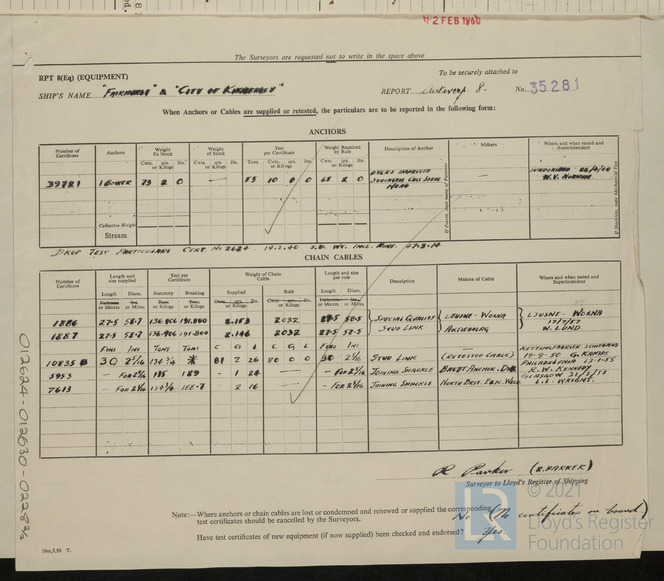 12 FEB 1960
The Surveyors are requested not to write in the space above
RPT 8(Eq) (EQUIPMENT)
To be securely attached to
SHIP'S NAME "FAIRMOUNT" & "CITY OF KIMBERLEY" REPORT 8. No. 35281
When Anchors or Cables are supplied or retested, the particulars are to be reported in the following form:
ANCHORS
Number of Certificate Anchors Weight Ex Stock Weight of Stock Test per Certificate Weight Required by Rule Description of Anchor Makers Where and when tested and Superintendent
Cwts. qrs. lbs. or Kilogs Cwts. qrs. lbs. or Kilogs Tons Cwts. qrs. lbs. or Kilogs Cwts. qrs. lbs. or Kilogs
39721 1 BOWER 73 2 0 — 53 10 0 0 68 2 0 BYERS IMPROVED STOCKLESS CAST STEEL HEAD — SUNDERLAND
Collective Weight
Stream
DROP TEST PARTICULARS CERT. No 2624
CHAIN CABLES
Number of Certificate Length and size supplied Test per Certificate Weight of Chain Cable Length and size per rule Description Makers of Cable Where and when tested and Superintendent
Length Diam. Statutory Breaking Supplied Rule Length Diam.
Fathoms or Metres Ins. or M/ms Tons or Kilogs Tons or Kilogs Cwts. qrs. lbs. or Kilogs Cwts. qrs. lbs. or Kilogs Fathoms or Metres Ins. or M/ms
1886 27.5 58.7 136.906 191.840 2.153 2032 27.5 58.5 SPECIAL QUALITY LJUSNE-WOXNA LJUSNE-WOXNA
1887 27.5 58.7 136.906 191.840 2.146 2032 27.5 58.5 STUD LINK W. LUND.
FMS INS TONS TONS C Q L C Q L FMS INS
10835 30 2 5/16 134 3/4 * 81 2 26 80 0 0 30 STUD LINK (RETESTED CABLE) 19-9-50 PHILADELPHIA
5953 — FOR 2 5/16 135 189 — 1 24 — FOR 2 5/16 JOINING SHACKLE BALDT ANCHOR. R.W. KENNEDY
7613 — FOR 2 5/16 134 3/4 188.7 2 16 — — FOR 2 5/16 JOINING SHACKLE NORTH BRIT. ELEC. WELD GLASGOW 21/5/57 L.L. WRIGHT.
012624-012630-0228
R Parker (R. PARKER)
Surveyor to Lloyd's Register of Shipping
Note:—Where anchors or chain cables are lost or condemned and renewed or supplied the corresponding test certificates should be cancelled by the Surveyors. No (No certificates on board)
Have test certificates of new equipment (if now supplied) been checked and endorsed? Yes
10m,3,58 T.
LR
© 2021
Lloyd's Register
Foundation